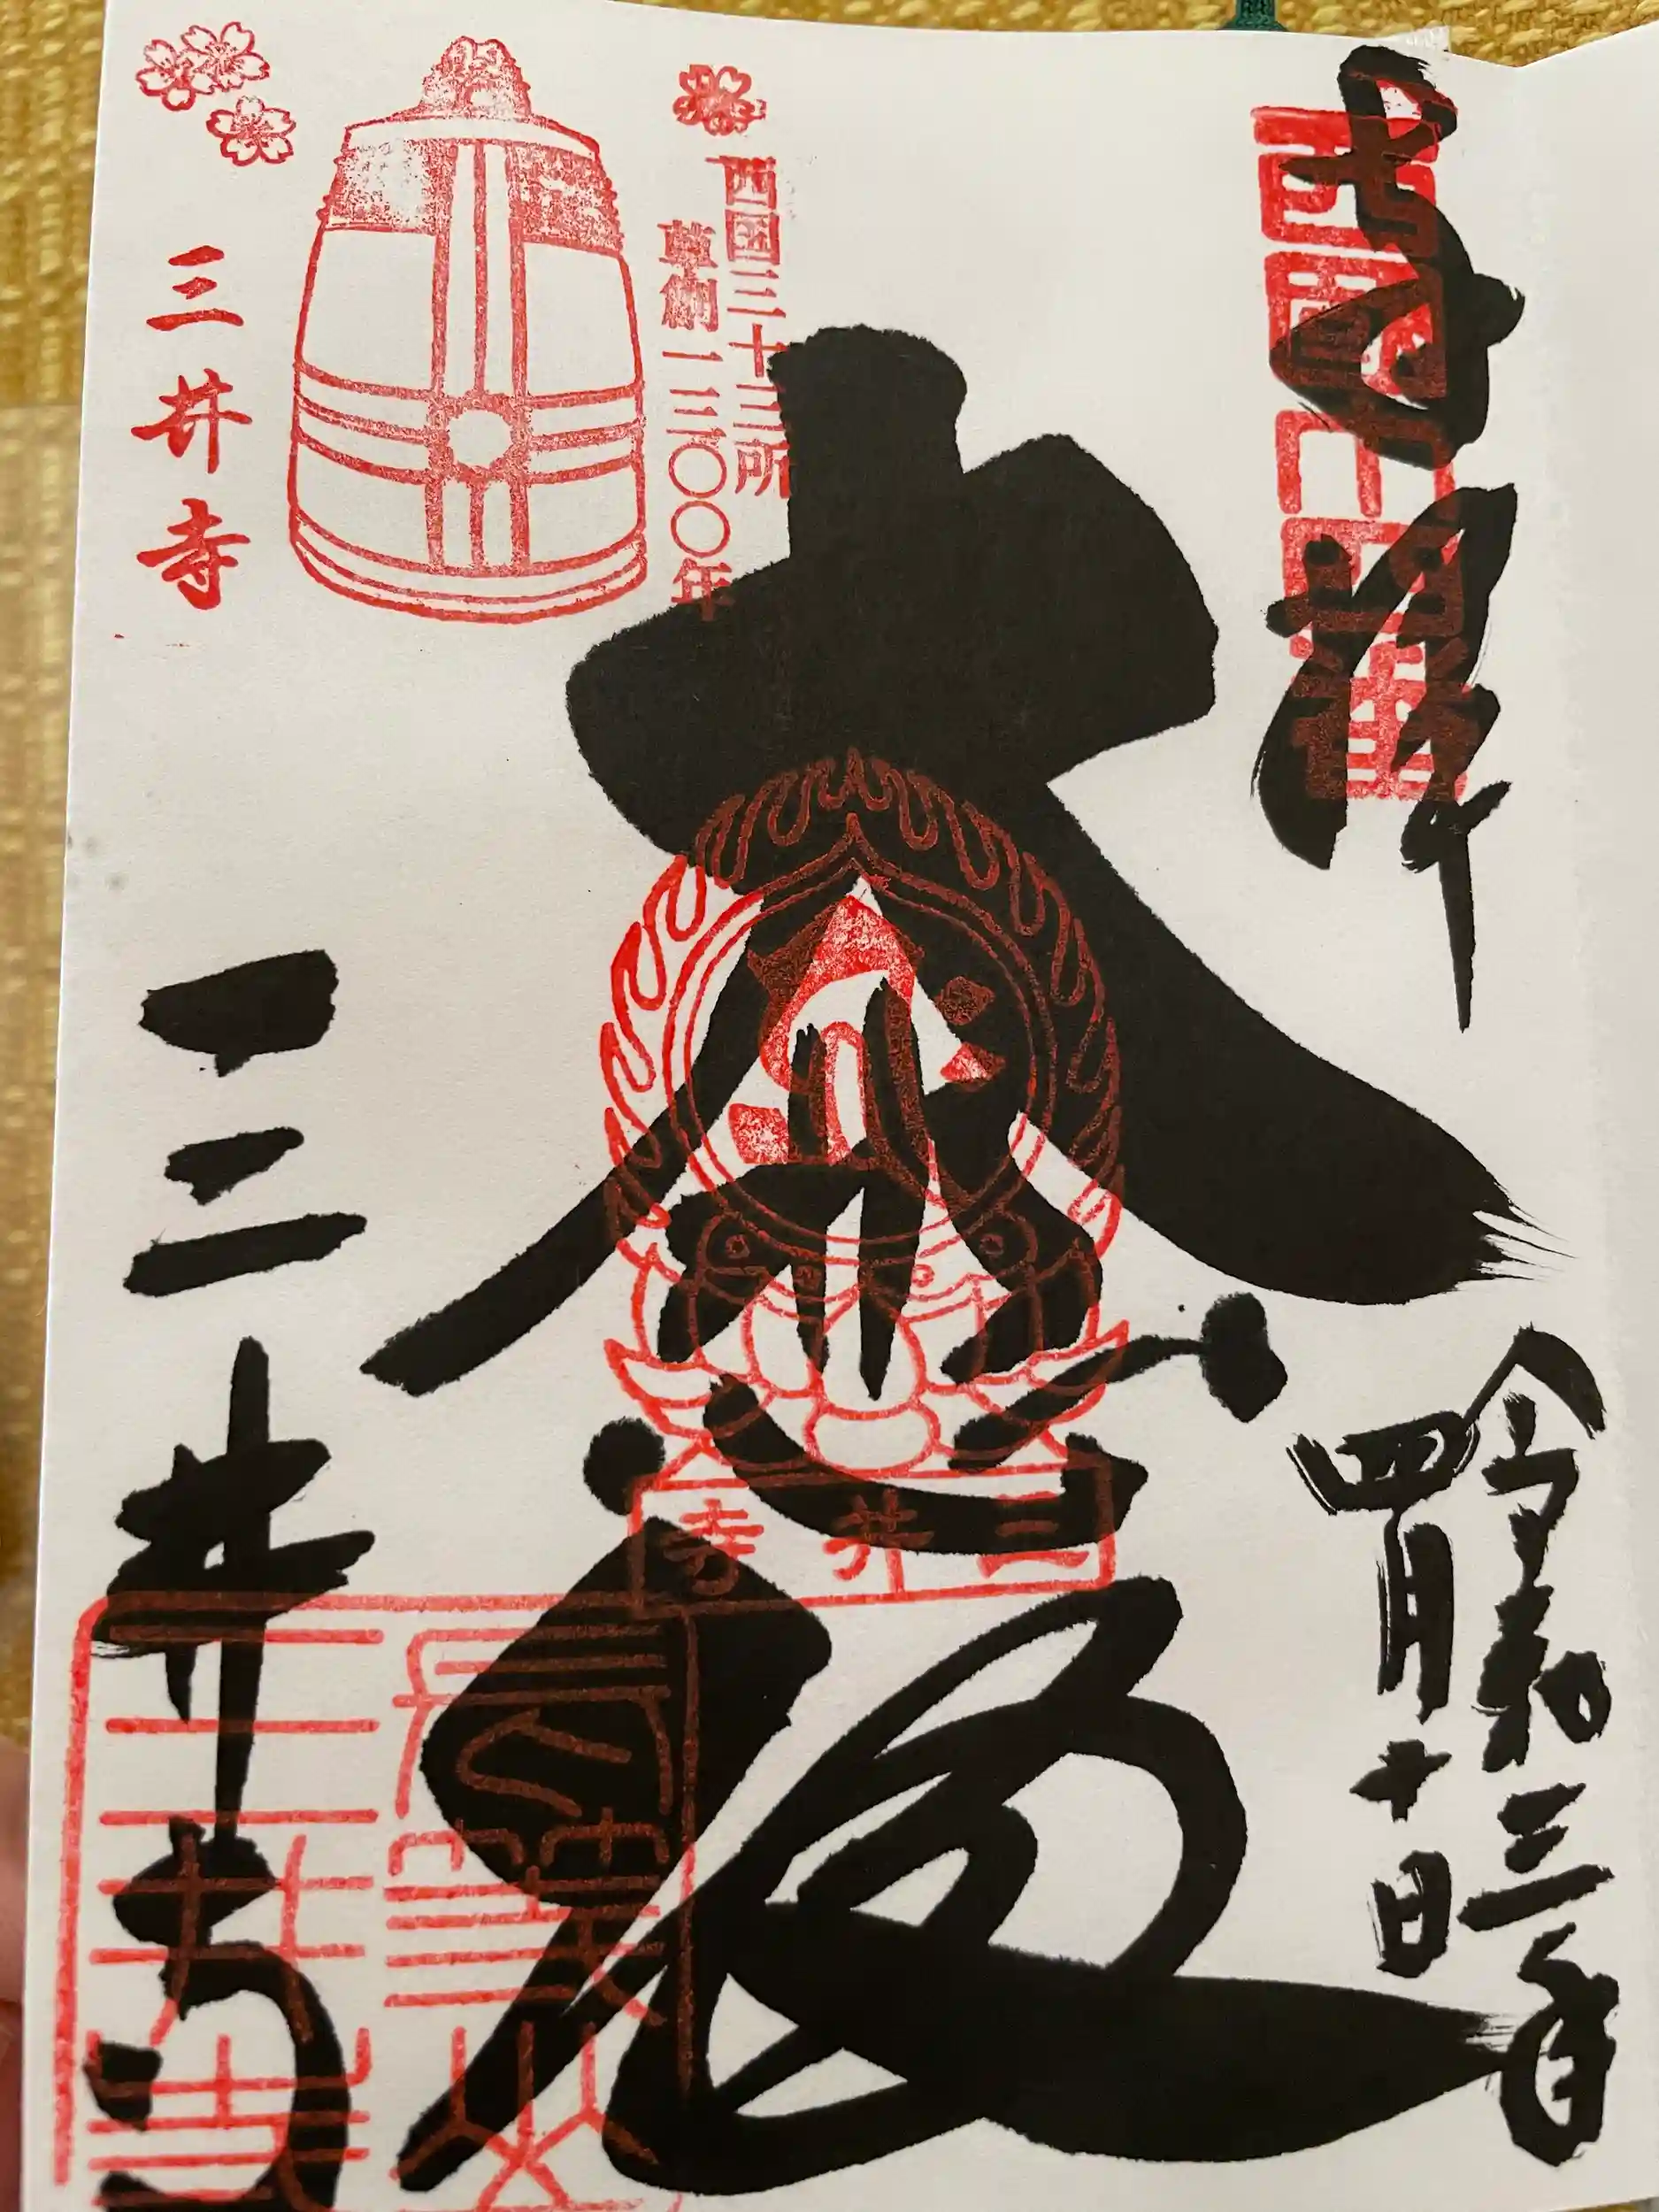 奉拝
西国十四番
令和三年
四月十日
大悲殿
西国三十三所
草創一三〇〇年
三井寺
三井寺
三井寺